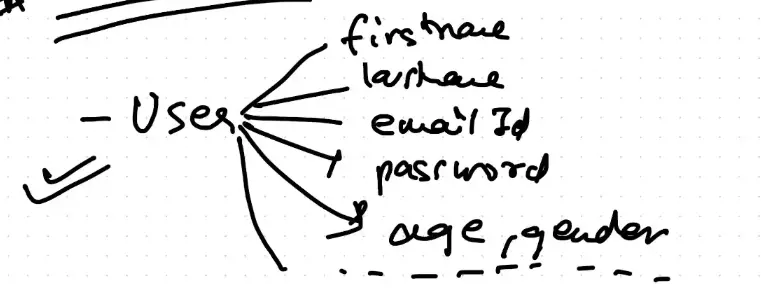 firstname
lastname
- User
emailId
password
age, gender